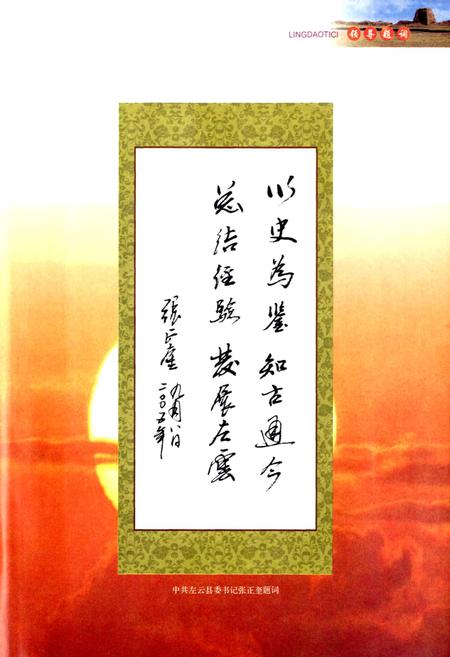 LINGDAOTICI 领导题词
以史為鉴 知古通今
总结经验 發展左雲
張正奎
二〇〇五年
九月八日
中共左云县委书记张正奎题词